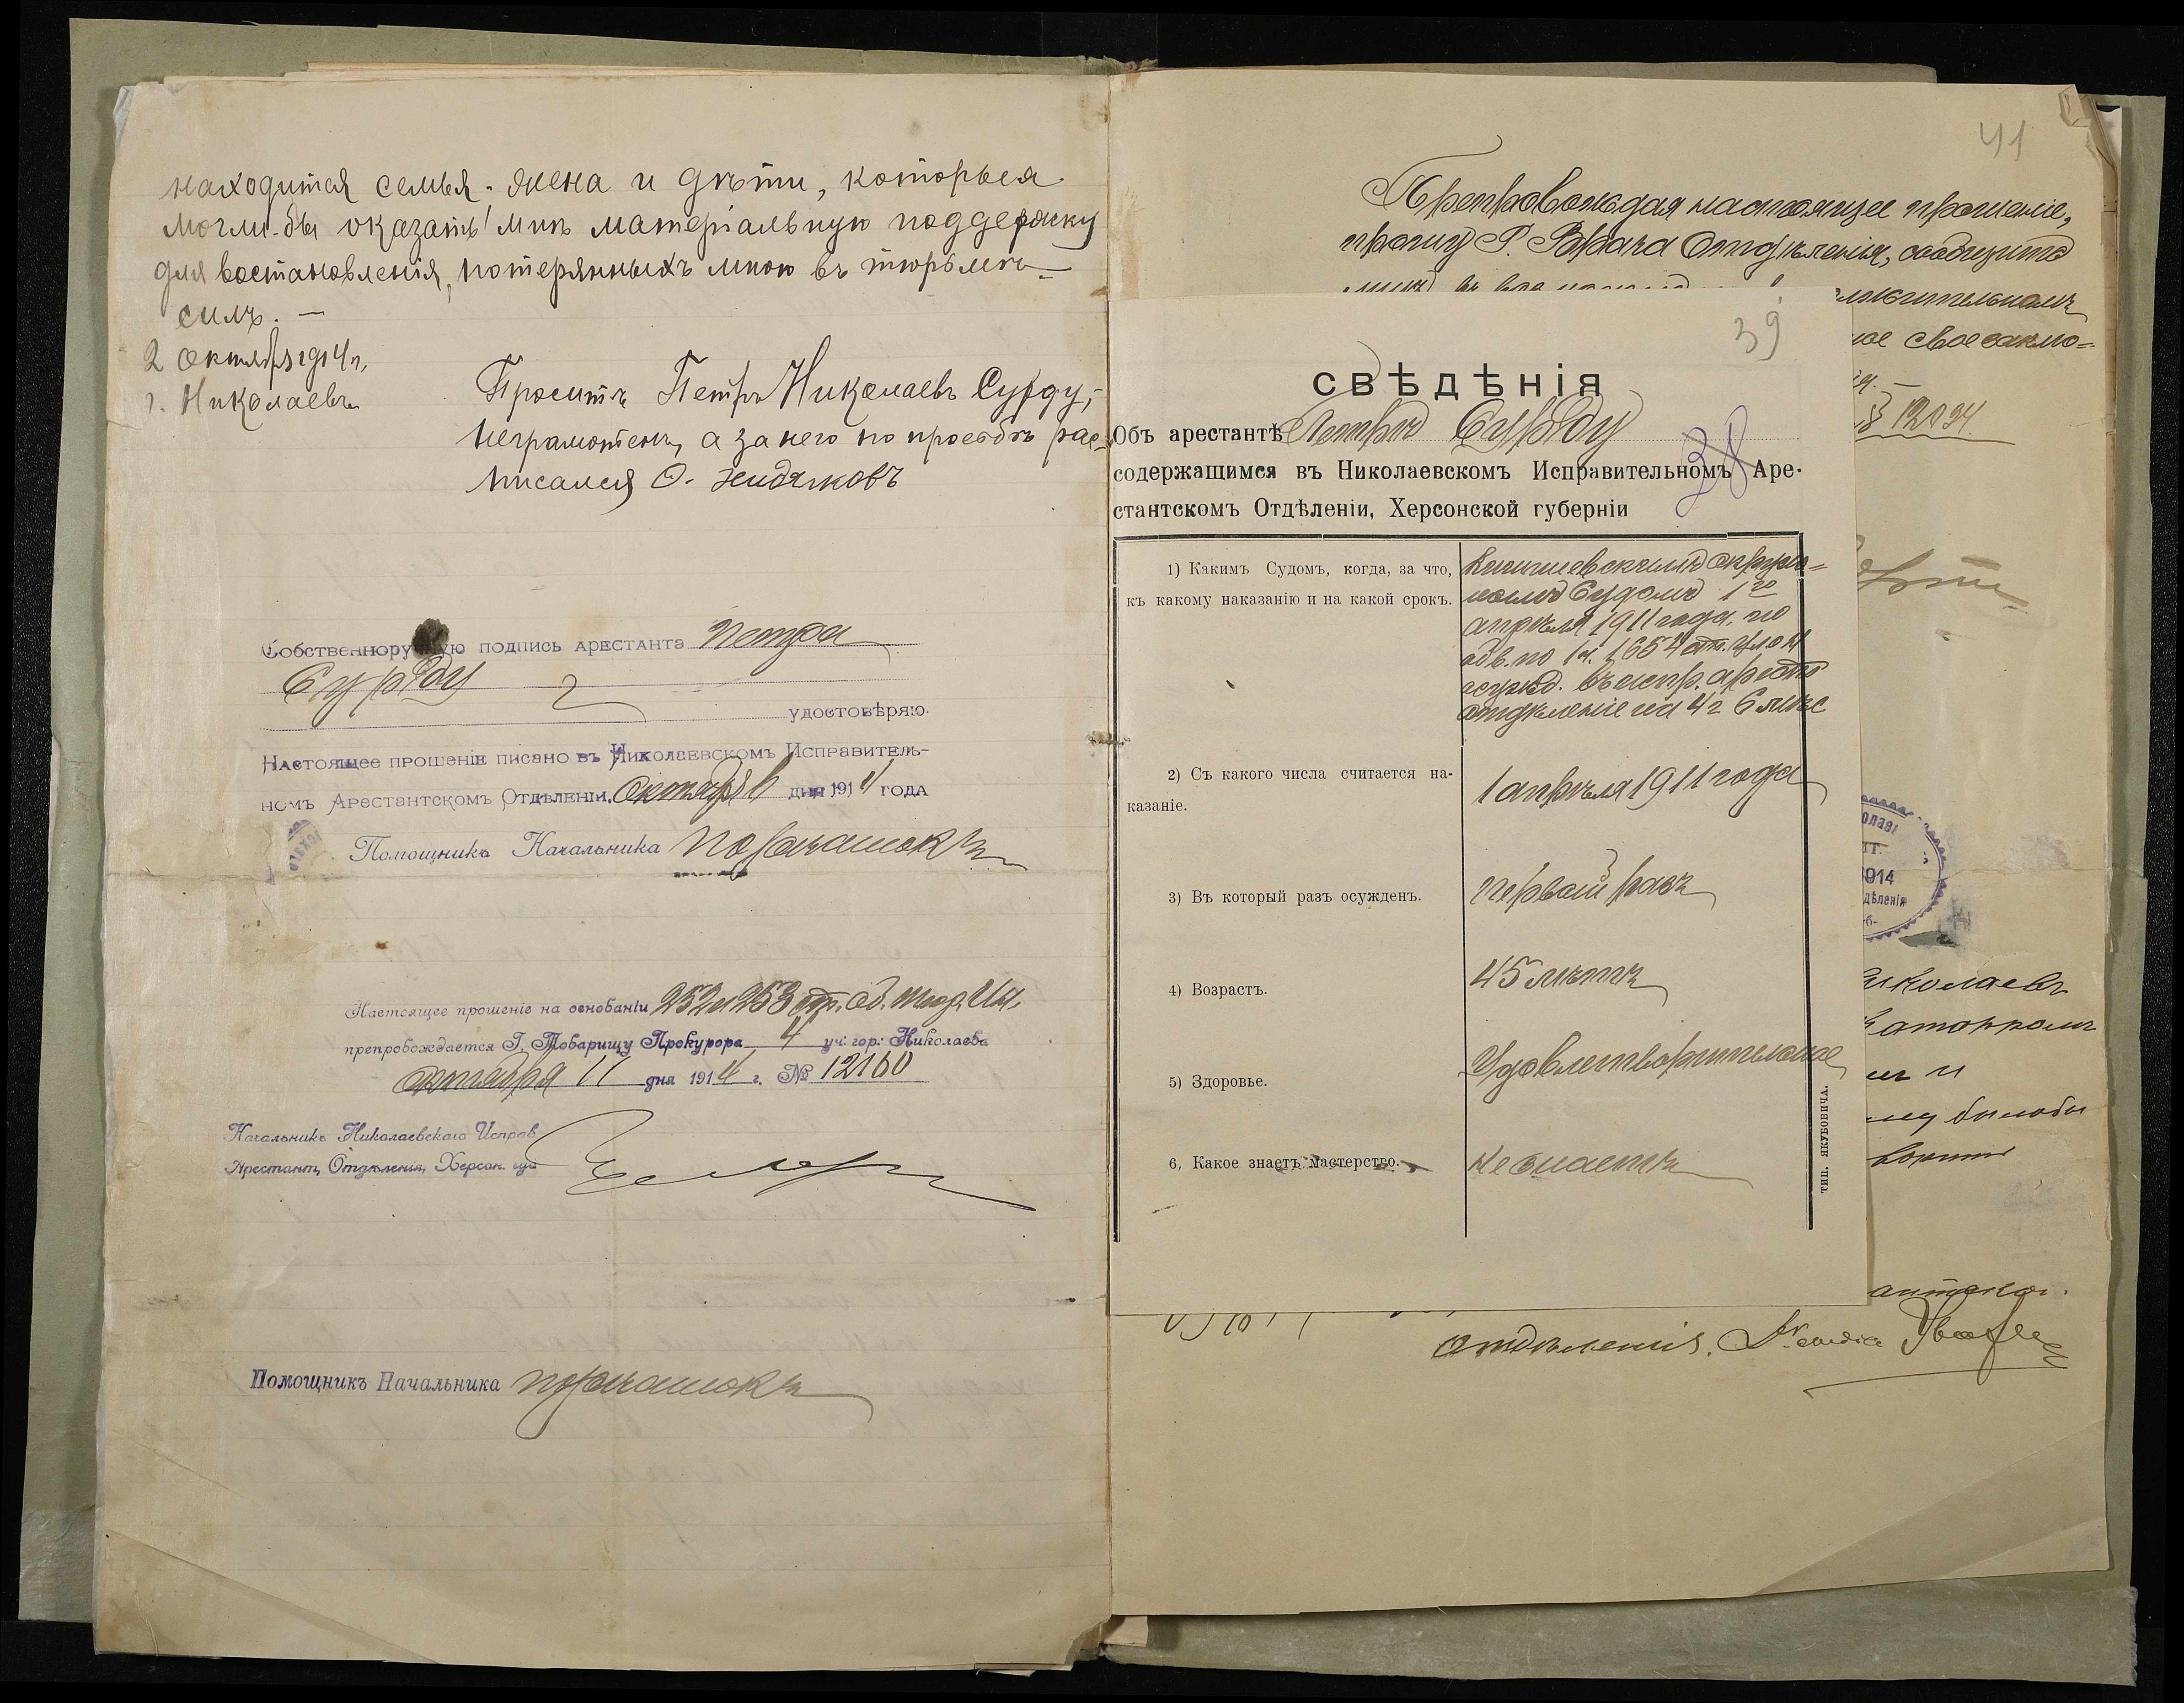 находится семья - жена и дѣти, которыя
могли-бы оказать мнѣ матеріальную поддержку
для востановленія, потерянныхъ мною въ тюрьмѣ
силъ. —
2 октября 1914 г.
г. Николаевъ
Проситъ Петръ Николаевъ Сурду,
неграмотенъ, а за него по просьбѣ рас-
писался О.
Собственноручную подпись арестанта Петра
Сурду
удостовѣряю.
Настоящее прошеніе писано въ Николаевскомъ Исправитель-
номъ Арестантскомъ Отдѣленіи, октября дня 1914 года
Помощникъ Начальника
Настоящее прошеніе на основаніи 252 и 253 ст.
препровождается Г. Товарищу Прокурора 4 уч. гор. Николаева
октября 11 дня 1914 г. № 12160
Начальникъ Николаевскаго Исправ.
Арестант. Отдѣленія, Херсон. губ.
Помощникъ Начальника
41
Препровождая настоящее прошеніе,
прошу Г. Врача Отдѣленія, сообщить
ое свое заклю-
12094
39
СВѢДѢНІЯ
Объ арестантѣ Петрѣ Сурду
38
содержащимся въ Николаевскомъ Исправительномъ Аре-
стантскомъ Отдѣленіи, Херсонской губерніи
1) Какимъ Судомъ, когда, за что,
къ какому наказанію и на какой срокъ.
Кишиневскимъ окруж-
нымъ Судомъ 1го
апрѣля 1911 года, по
обв. по 1 ч. 1654 ст. Улож
осужд. въ испр. арест.
отдѣленіе на 4 г 6 мѣс
2) Съ какого числа считается на-
казаніе.
1 апрѣля 1911 года
3) Въ который разъ осужденъ.
первый разъ
4) Возрастъ.
45 лѣтъ
5) Здоровье.
Удовлетворительное
6, Какое знаетъ мастерство.
не знаетъ
ТИП. ЯКУБОВИЧА.
1914
иколаевъ
отдѣленія.